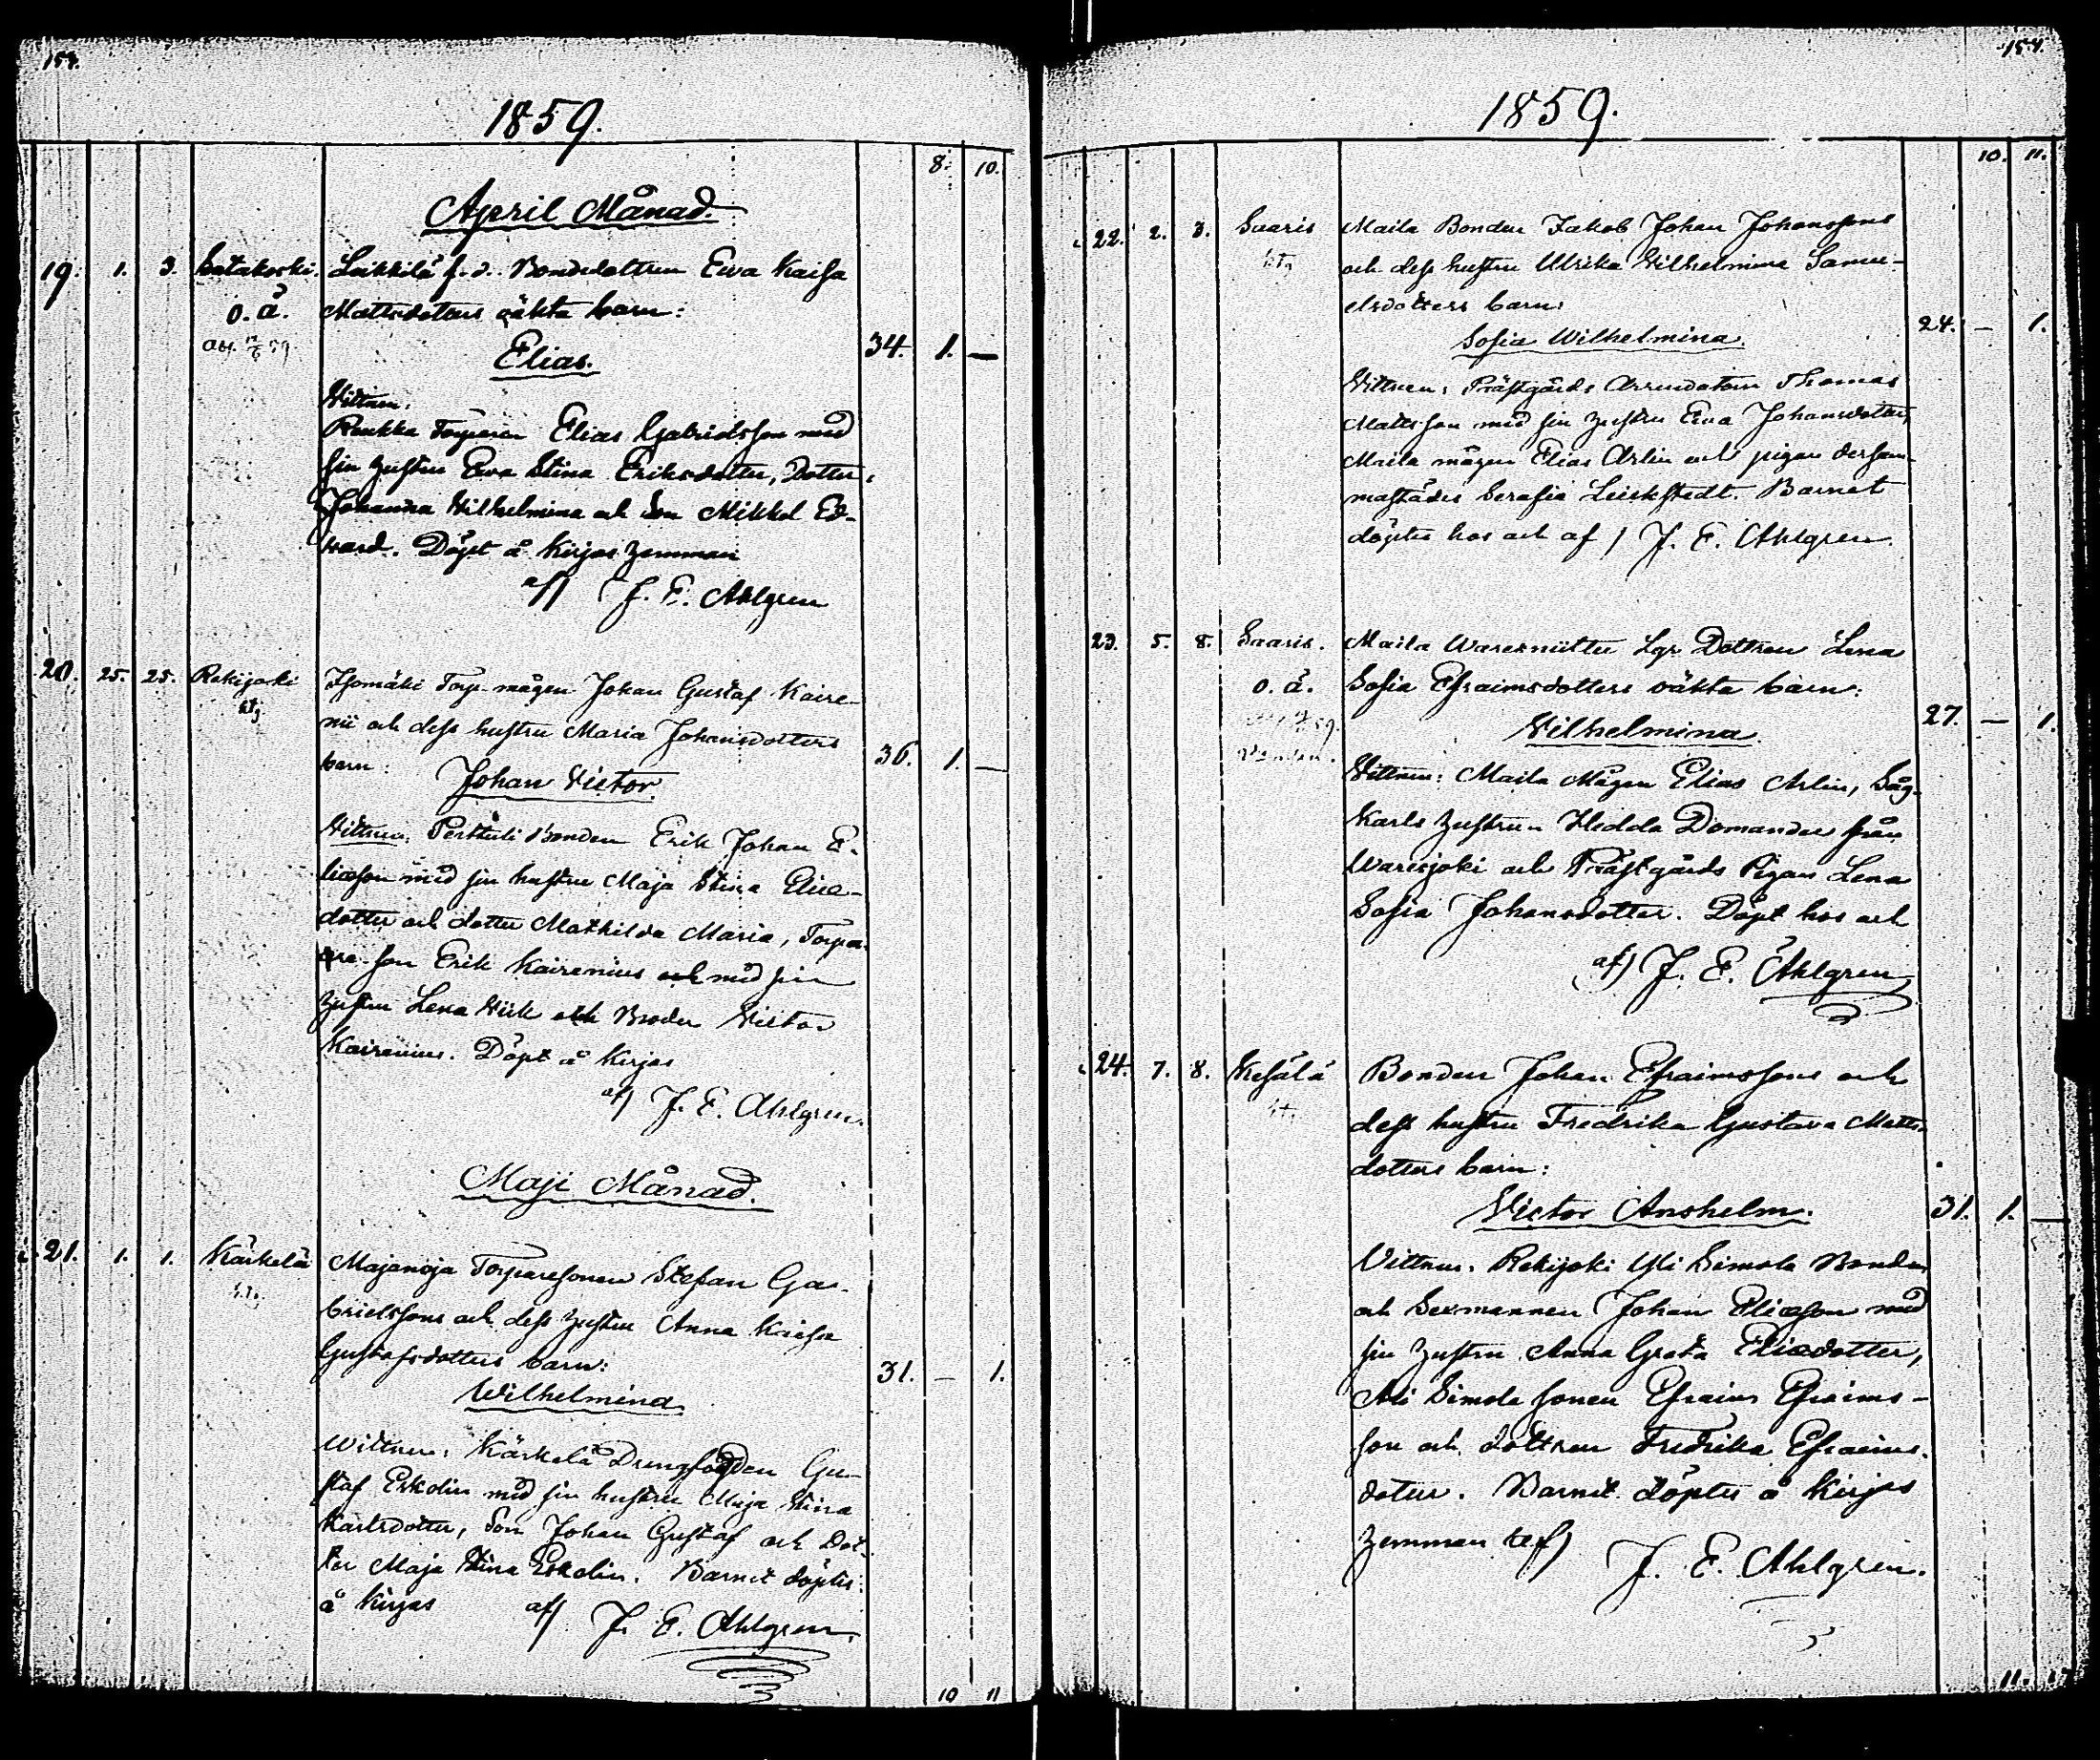 154.
1859.
8. 10.
April Månad.
19. 1. 3. Satakoski. Leikkilä f. d. Bondedottren Ewa Kaisa
o. ä. Mattsdotters oäkta barn:
Elias. 34. 1. —
Wittnen:
Roukka Torparen Elias Gabrielsson med
sin hustru Ewa Stina Eriksdotter, Dotter
Johanna Wilhelmina och Son Mikkel Ed-
ward. Döpt å Kirjas hemman
af) J. E. Ahlgren
20. 25. 25. Rekijoki Isomäki Torp. mågen Johan Gustaf Kaire-
nii och dess hustru Maria Johansdotters
barn: Johan Victor. 36. 1. —
Wittnen: Perttuli Bonden Erik Johan E-
liasson med sin hustru Maja Stina Elias-
dotter och dotter Mathilda Maria, Torpa-
re son Erik Kairenius med sin
hustru Lena Wik och Broder Victor
Kairenius. Döpt å Kirjas
af) J. E. Ahlgren.
Maji Månad.
21. 1. 1. Kärkelä Majanoja Torparesonen Stefan Ga-
brielssons och dess hustru Anna Kaisa
Gustafsdotters barn:
Wilhelmina 31. — 1.
Wittnen: Kärkelä Drengfogden Gu-
staf Eskolin med sin hustru Maja Stina
Karlsdotter, Son Johan Gustaf och Dot-
ter Maja Stina Eskolin. Barnet döptes
å Kirjas af) J. E. Ahlgren.
10 11
154.
1859.
10. 11.
22. 2. 3. Saaris Maila Bonden Jakob Johan Johanssons
och dess hustru Ulrika Wilhelmina Samu-
elsdotters barn:
Sofia Wilhelmina. 24. — 1.
Wittnen: Prästgårds Arrendatorn Thomas
Mattsson med sin hustru Ewa Johansdotter,
Maila mågen Elias Arlin och pigan dersam-
mastädes Serafia Leickstedt. Barnet
döptes hos och af) J. E. Ahlgren.
23. 5. 8. Saaris. Maila Lgr Dottren Lena
o. ä. Sofia Efraimsdotters oäkta barn:
Wilhelmina. 27. — 1.
Wittnen: Maila Mågen Elias Arlin, Såg-
karls hustrun Hedda Domander från
Warisjoki och Prästgårds Pigan Lena
Sofia Johansdotter. Döpt hos och
af) J. E. Ahlgren
24. 7. 8. Kesälä Bonden Johan Efraimssons och
dess hustru Fredrika Gustava Matts-
dotters barn:
Victor Anshelm. 31. 1. —
Vittnen: Rekijoki Yli Simola Bonden
och Sexmannen Johan Eliasson med
sin hustru Anna Greta Eliasdotter,
Ali Simola sonen Efraim Efraims-
son och dottren Fredrika Efraims-
dotter. Barnet döptes å Kirjas
hemman af)
J. E. Ahlgren.
11.